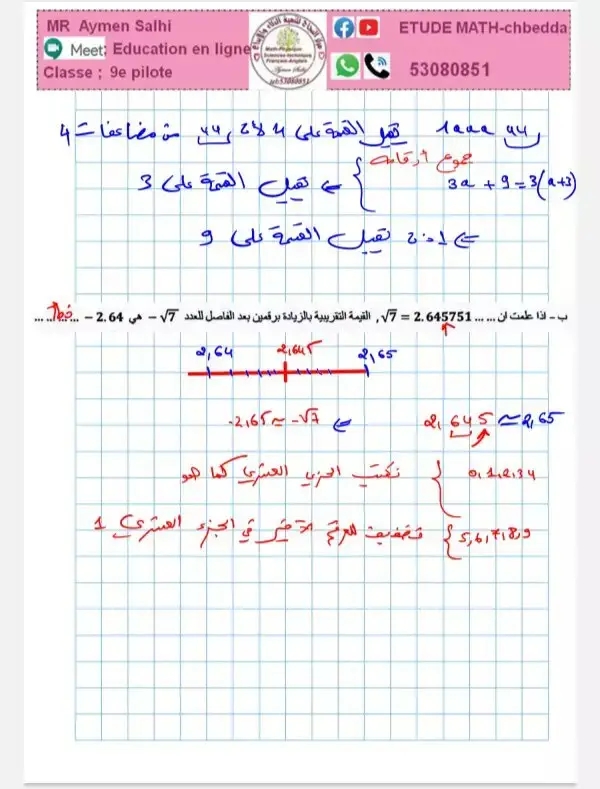 MR Aymen Salhi
Meet: Education en ligne
Classe ; 9e pilote
ETUDE MATH-chbedda
53080851
1aaa44 تقبل القسمة على 4 لأن 44 من مضاعفات 4
مجموع أرقامه
3a + 9 = 3(a+3) } => تقبل القسمة على 3
=> تقبل القسمة على 9
ب – اذا علمت ان ...... √7 = 2.645751 , القيمة التقريبية بالزيادة برقمين بعد الفاصل للعدد √7 – هي 2.64 – ... خطأ ...
2,64 2,645 2,65
2,645 ≈ 2,65 => -√7 ≈ -2,65
0,1,2,3,4 } نكتب الجزء العشري كما هو
5,6,7,8,9 } للرقم الأخير في الجزء العشري 1